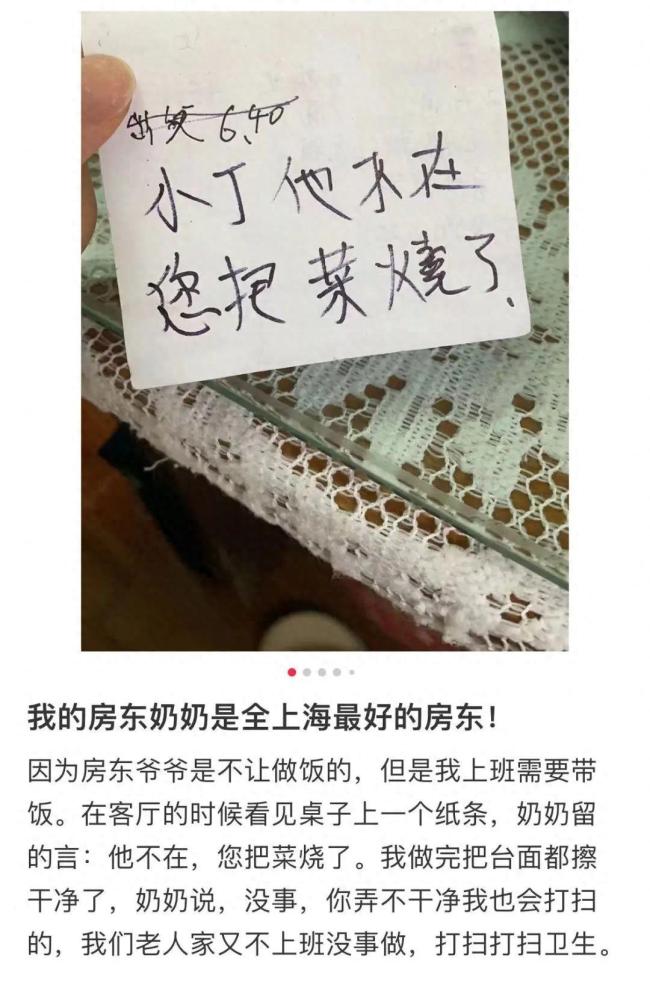 6.40
小丁他不在
您把菜烧了.
我的房东奶奶是全上海最好的房东！
因为房东爷爷是不让做饭的，但是我上班需要带
饭。在客厅的时候看见桌子上一个纸条，奶奶留
的言：他不在，您把菜烧了。我做完把台面都擦
干净了，奶奶说，没事，你弄不干净我也会打扫
的，我们老人家又不上班没事做，打扫打扫卫生。